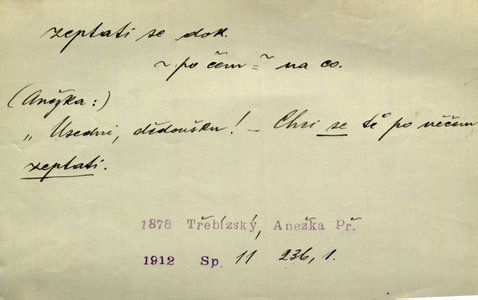 zeptati se dok.
~ po čem = ~ na co.
(Anežka:)
„Usedni, dědoušku! – Chci se tě po něčem
zeptati.
1878 Třebízský, Anežka Př.
1912 Sp 11 236, 1.